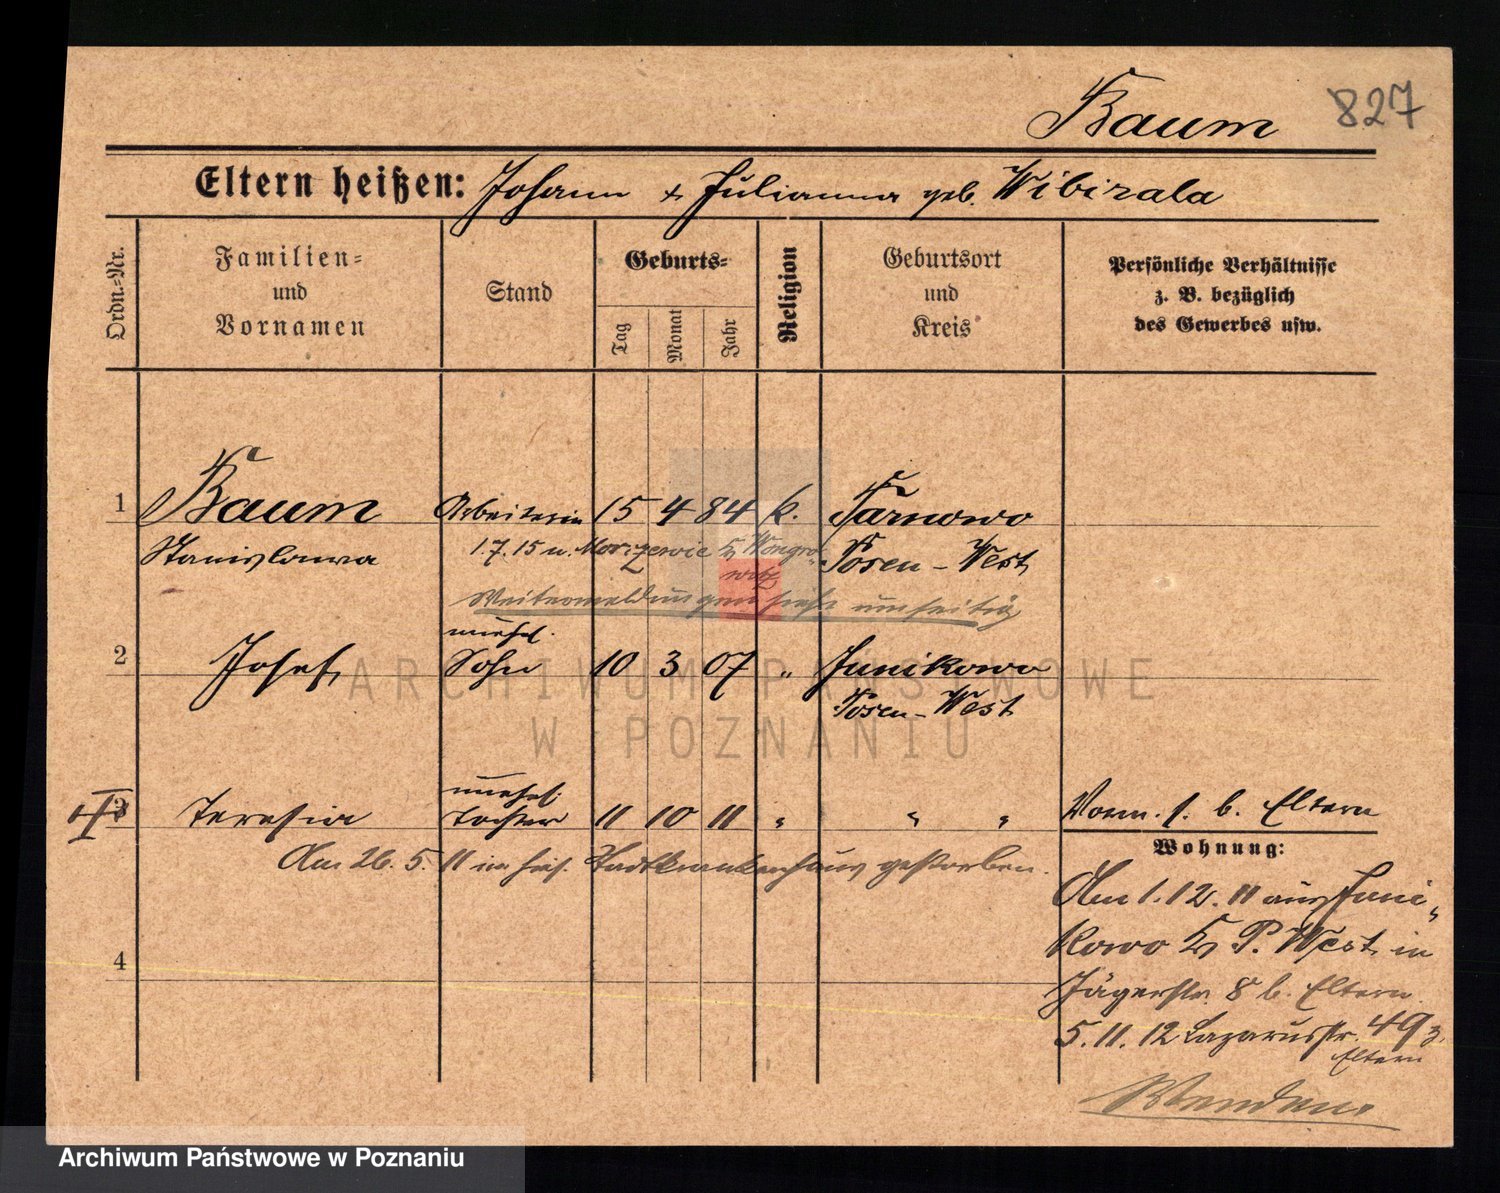 Baum 827
Eltern heißen: Johann + Julianna geb. Wibirala
Ordn.-Nr.
Familien-
und
Vornamen
Stand
Geburts-
Tag
Monat
Jahr
Religion
Geburtsort
und
Kreis
Persönliche Verhältnisse
z. B. bezüglich
des Gewerbes usw.
1 Baum Arbeiterin 15 4 84 k. Tarnowo
Stanislawa 1.7.15 n. Kr. Wongro- Posen-West
witz
Weitermeldungen siehe umseitig
unehel.
2 Josef Sohn 10 3 07 " Junikowo
Posen-West
unehel.
3 Teresia Tochter 11 10 11 " " " Vorm. s. b. Eltern
Am 26. 5. 11 im hies. Stadtkrankenhaus gestorben.
Wohnung:
Am 1.12.11 aus Juni-
kowo Kr P. West in
Jägerstr. 8 b. Eltern.
4
5.11.12 Lazarusstr. 49
Eltern
Wenden.
ARCHIWUM PAŃSTWOWE
W POZNANIU
Archiwum Państwowe w Poznaniu